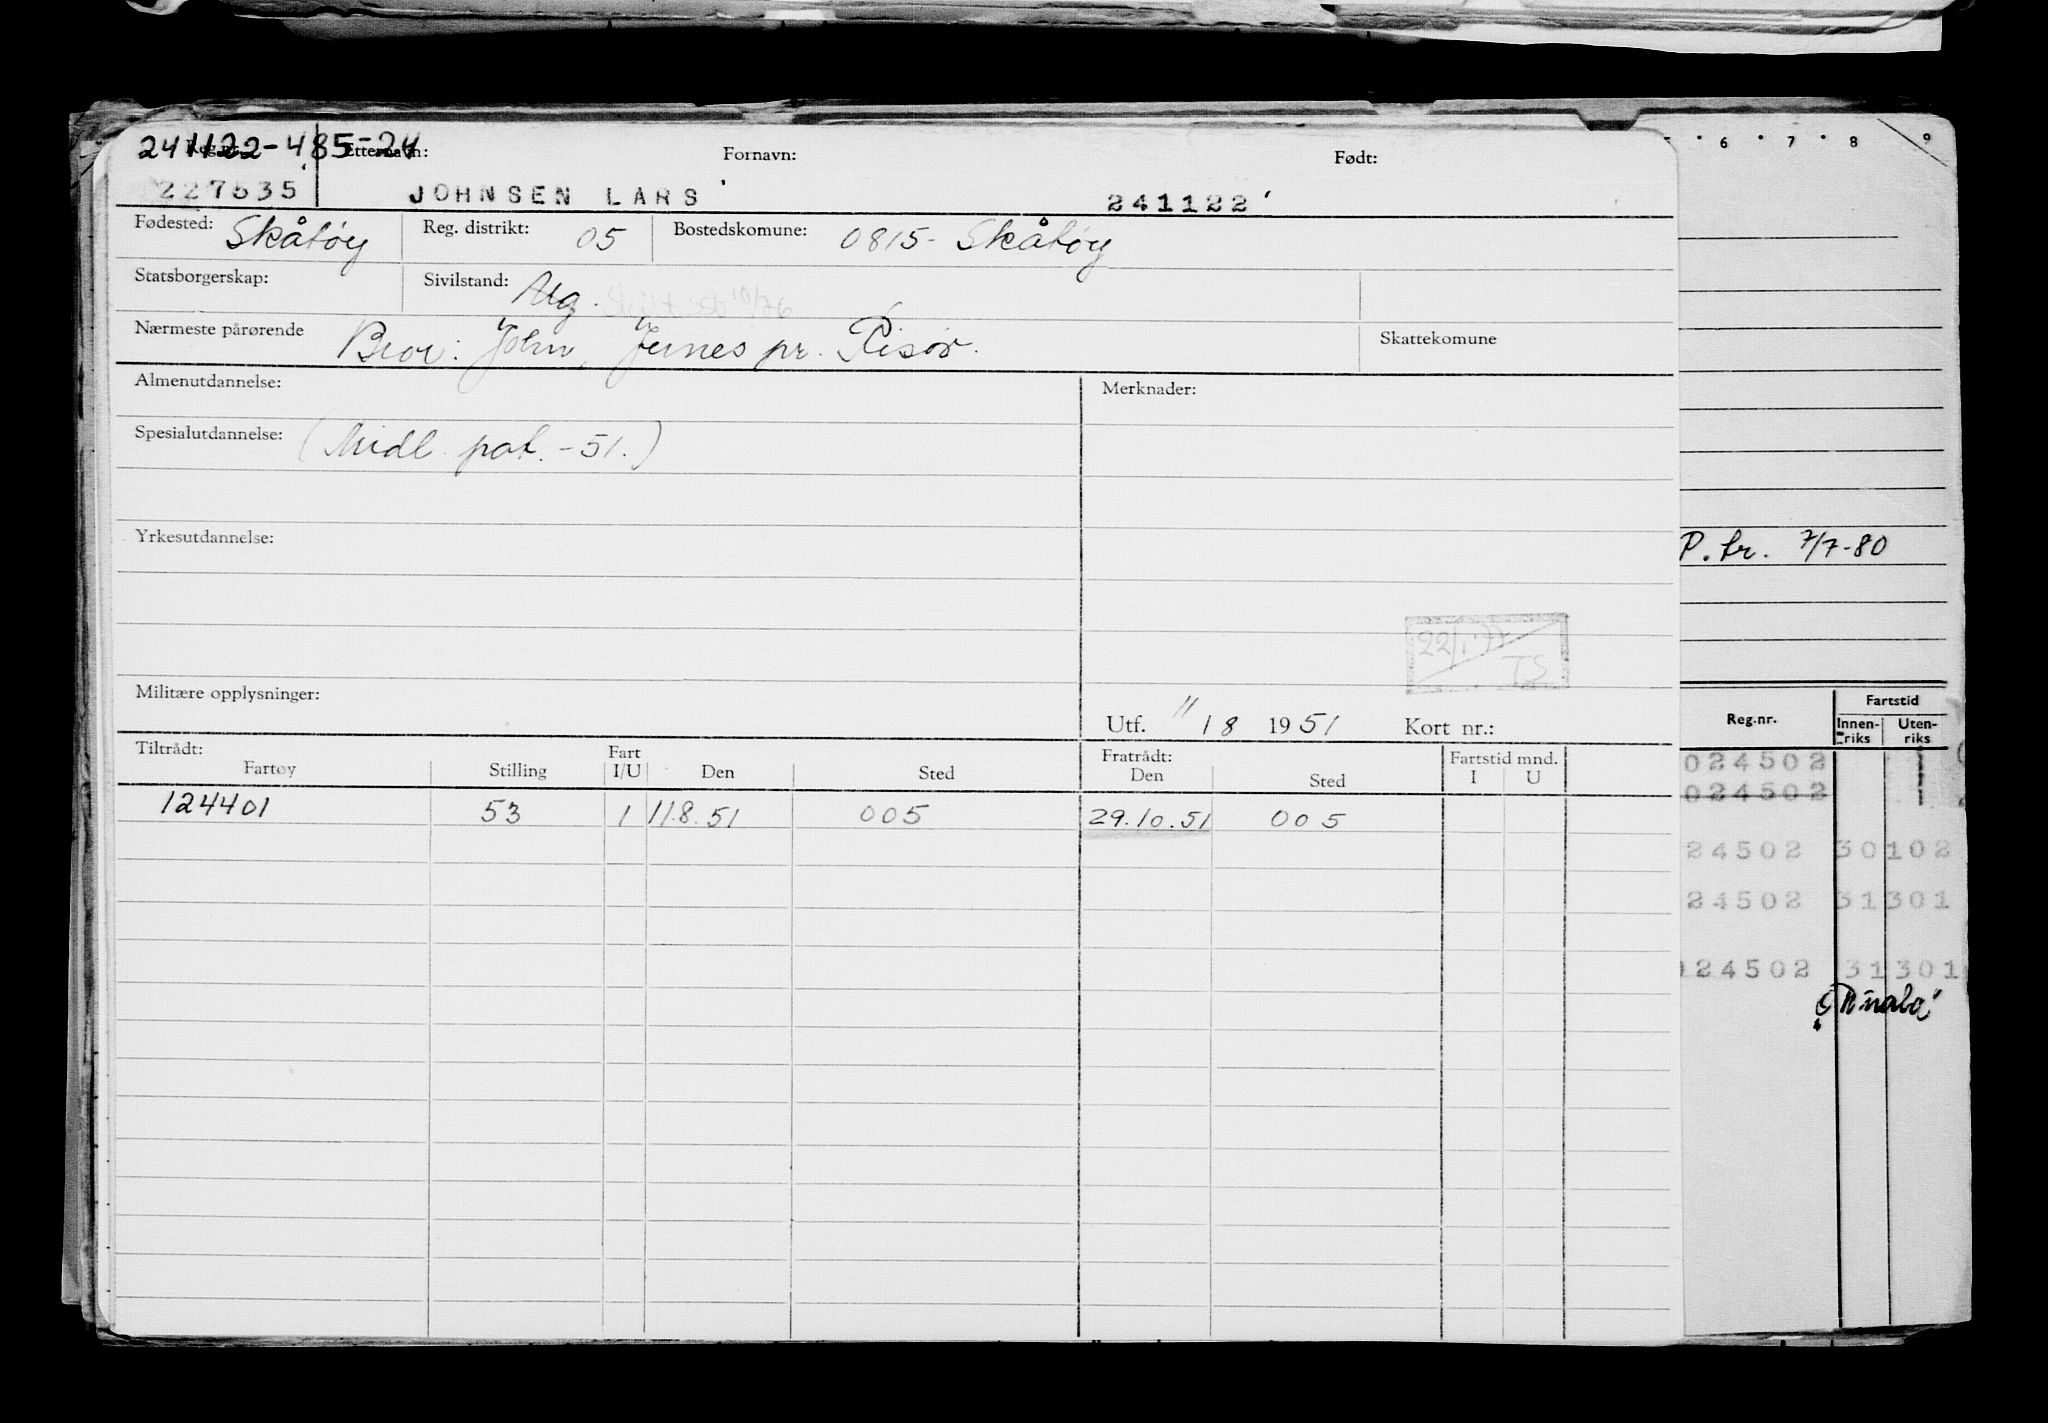 241122-485-24
Reg.nr. Etternavn: Fornavn: Født:
227535 JOHNSEN LARS 241122
Fødested: Skåtøy Reg. distrikt: 05 Bostedskomune: 0815- Skåtøy
Statsborgerskap: Sivilstand: Ug.
Nærmeste pårørende Bror: John, Jernes pr. Risør. Skattekomune
Almenutdannelse: Merknader:
Spesialutdannelse: (Midl. pat. -51.)
Yrkesutdannelse:
22/1-77
TS
Militære opplysninger:
Utf. 11 / 8 1951 Kort nr.:
Tiltrådt: Fratrådt:
Fartøy Stilling Fart I/U Den Sted Den Sted Fartstid mnd. I U
124401 53 1 11.8.51 005 29.10.51 005
6 7 8 9
P. tr. 7/7-80
Reg.nr. Fartstid
Innen-riks Uten-riks
024502
024502
24502 30102
24502 31301
24502 31301